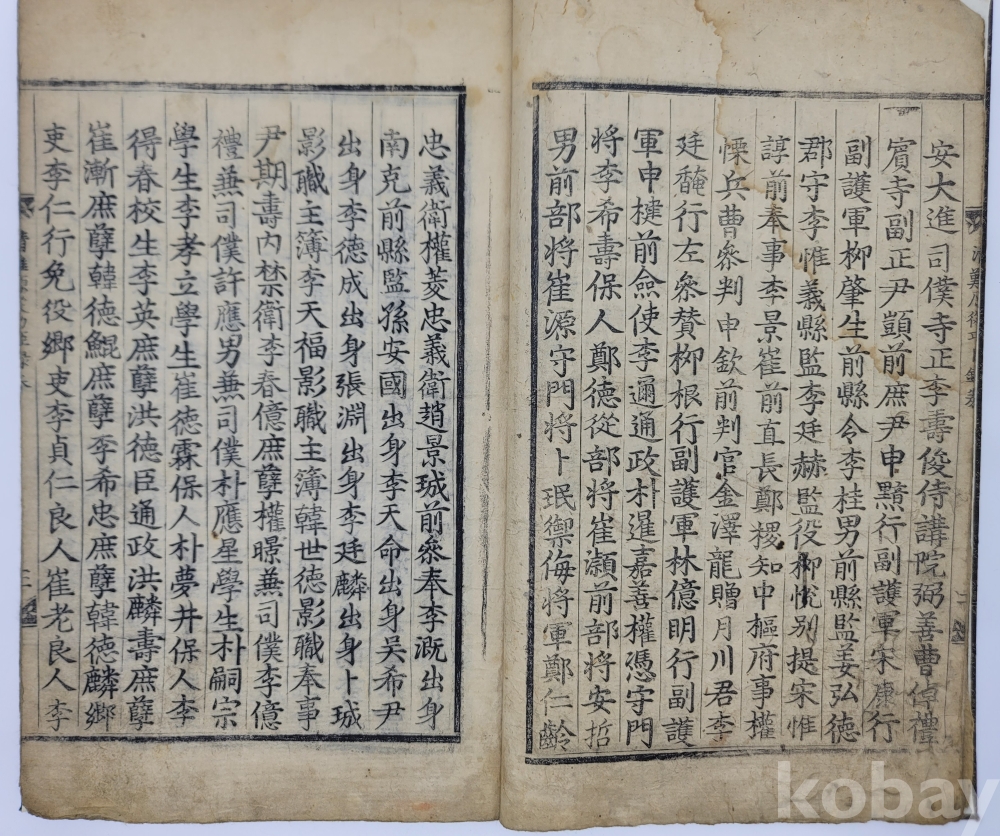 安大進司僕寺正李壽俊侍講院弼善曹倬禮
賓寺副正尹顗前庶尹申黯行副護軍宋康行
副護軍柳肇生前縣令李桂男前縣監姜弘德
郡守李惟義縣監李廷赫監役柳悅別提宋惟
諄前奉事李景崔前直長鄭稷知中樞府事權
慄兵曹參判申欽前判官金澤龍贈月川君李
廷馣行左參贊柳根行副護軍林億明行副護
軍申楗前僉使李邇通政朴暹嘉善權憑守門
將李希壽保人鄭德從部將崔灝前部將安哲
男前部將崔源守門將卜珉禦侮將軍鄭仁齡
忠義衛權菱忠義衛趙景珹前參奉李溉出身
南克前縣監孫安國出身李天命出身吳希尹
出身李德成出身張淵出身李廷麟出身卜珹
影職主簿李天福影職主簿韓世德影職奉事
尹期壽內禁衛李春億庶孽權暻兼司僕李億
禮兼司僕許應男兼司僕朴應星學生朴嗣宗
學生李孝立學生崔德霖保人朴夢井保人李
得春校生李英庶孽洪德臣通政洪麟壽庶孽
崔漸庶孽韓德鯤庶孽李希忠庶孽韓德麟鄉
吏李仁行免役鄉吏李貞仁良人崔老良人李
kobay